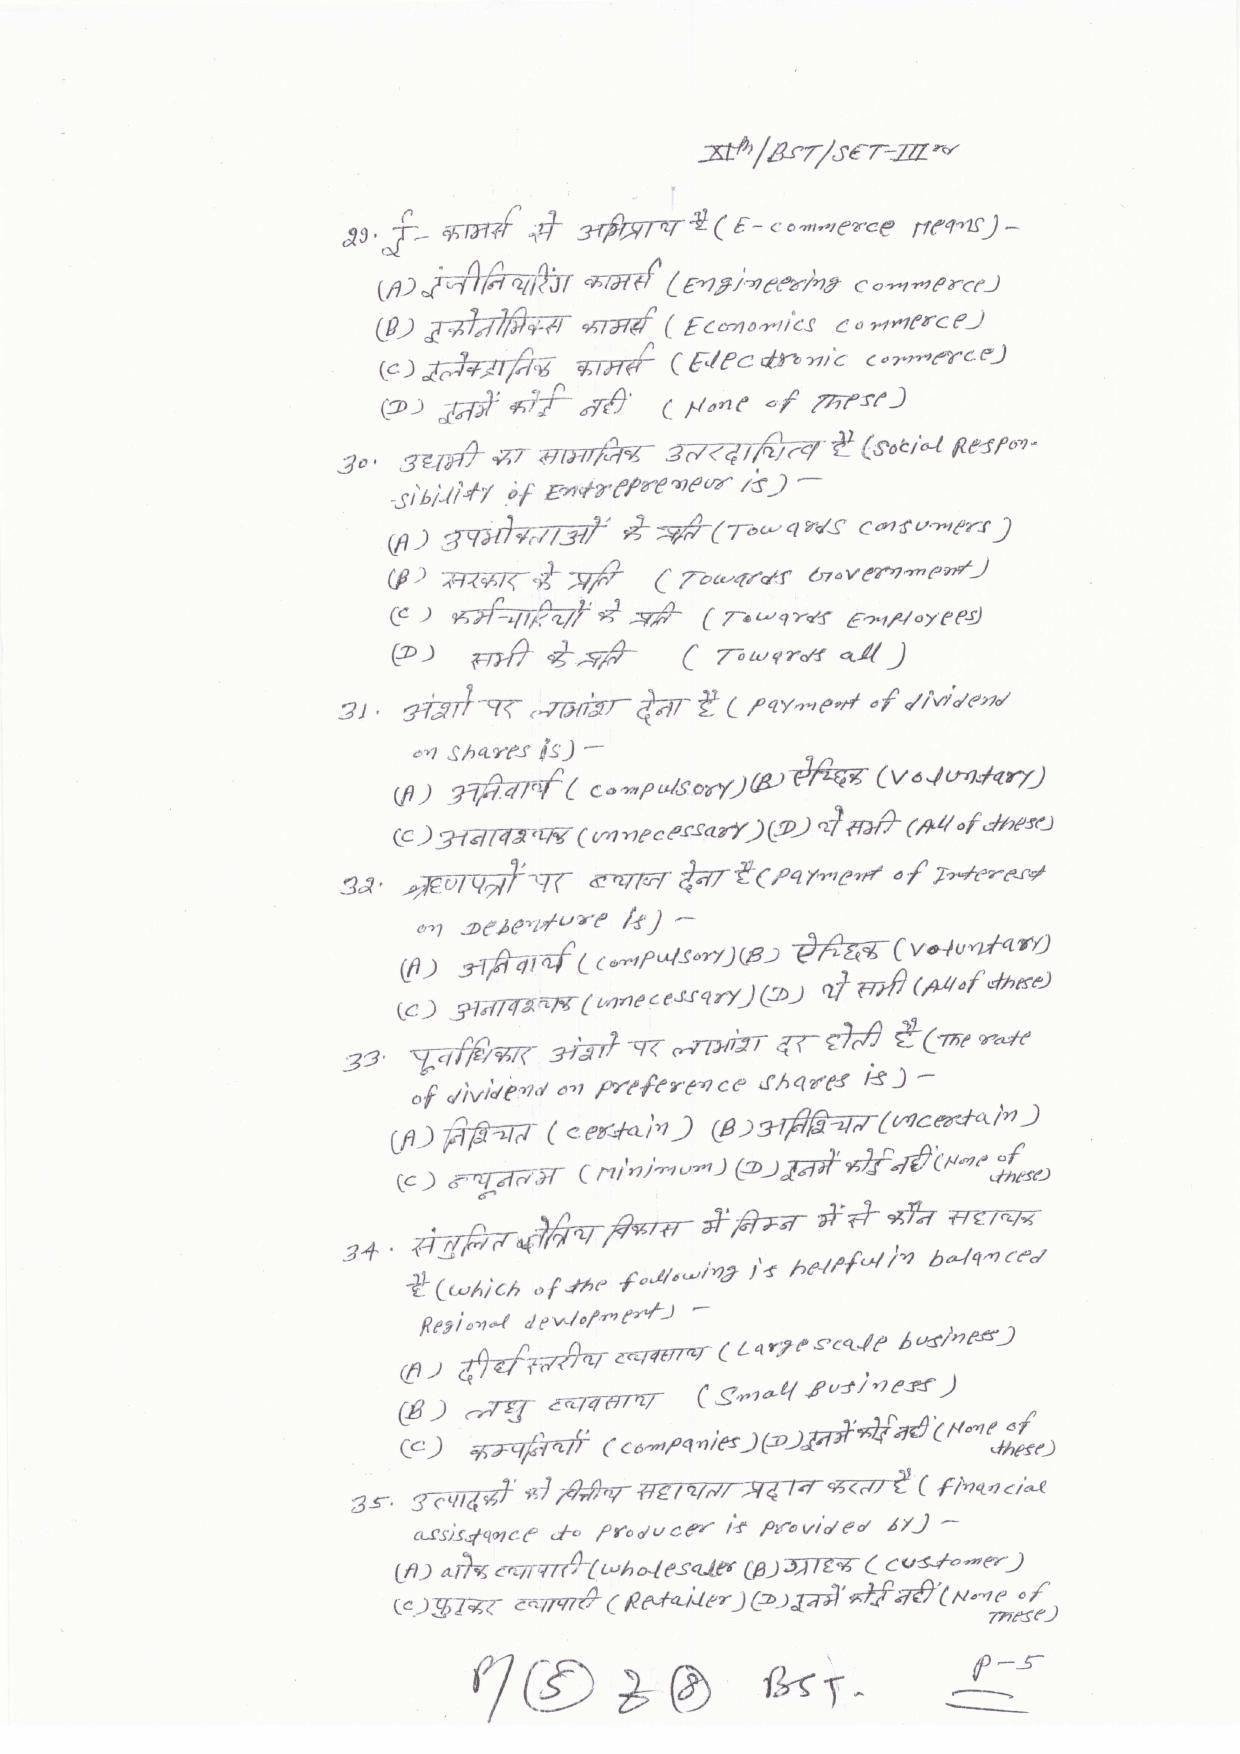 XIth/BST/SET-IIIrd
29. ई- कामर्स से अभिप्राय है (E-commerce Means) -
(A) इंजीनियरिंग कामर्स (Engineering commerce)
(B) इकोनोमिक्स कामर्स (Economics commerce)
(C) इलेक्ट्रानिक कामर्स (Electronic commerce)
(D) इनमें कोई नहीं (None of These)
30. उद्यमी का सामाजिक उतरदायित्व है (Social Respon-
-sibility of Entrepreneur is) -
(A) उपभोक्ताओं के प्रति (Towards Consumers)
(B) सरकार के प्रति (Towards Government)
(C) कर्मचारियों के प्रति (Towards Employees)
(D) सभी के प्रति (Towards all)
31. अंशो पर लाभांश देना है (Payment of dividend
on shares is) -
(A) अनिवार्य (Compulsory) (B) ऐच्छिक (Voluntary)
(C) अनावश्यक (unnecessary) (D) ये सभी (All of these)
32. ऋणपत्रों पर ब्याज देना है (Payment of Interest
on Debenture is) -
(A) अनिवार्य (Compulsory) (B) ऐच्छिक (Voluntary)
(C) अनावश्यक (unnecessary) (D) ये सभी (All of these)
33. पूर्वाधिकार अंशो पर लाभांश दर होती है (The rate
of dividend on preference shares is) -
(A) निश्चित (certain) (B) अनिश्चित (uncertain)
(C) न्यूनतम (Minimum) (D) इनमें कोई नहीं (None of
these)
34. संतुलित क्षेत्रिय विकास में निम्न में से कौन सहायक
है (which of the following is helpful in balanced
Regional devlopment) -
(A) दीर्घ स्तरीय व्यवसाय (Large scale business)
(B) लघु व्यवसाय (Small Business)
(C) कम्पनियाँ (companies) (D) इनमें कोई नहीं (None of
these)
35. उत्पादकों को वित्तीय सहायता प्रदान करता है (financial
assistance to producer is provided by) -
(A) थोक व्यापारी (wholesaler (B) ग्राहक (customer)
(C) फुटकर व्यापारी (Retailer) (D) इनमें कोई नहीं (None of
These)
P/(5) (8) BST. P-5